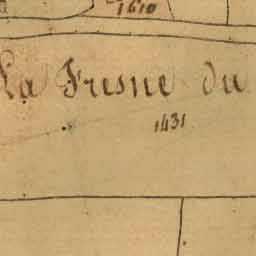 1610
La Fresne du
1431